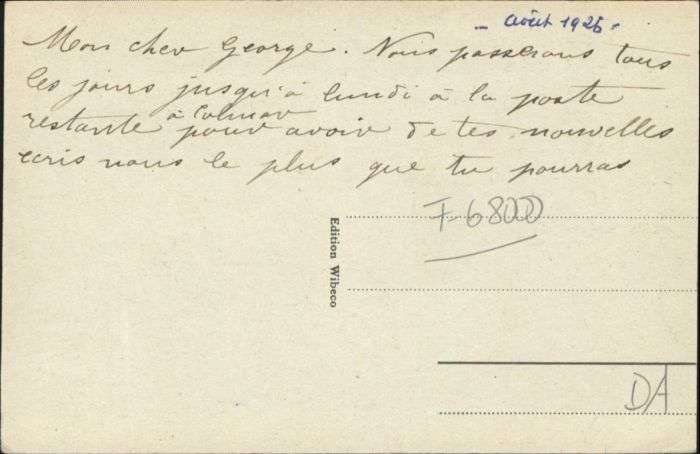 - Août 1926 -
Mon cher George. Nous passerons tous
les jours jusqu'à lundi à la poste
restante à Colmar pour avoir de tes nouvelles
ecris nous le plus que tu pourras
F-68000
Edition Wibeco
DA